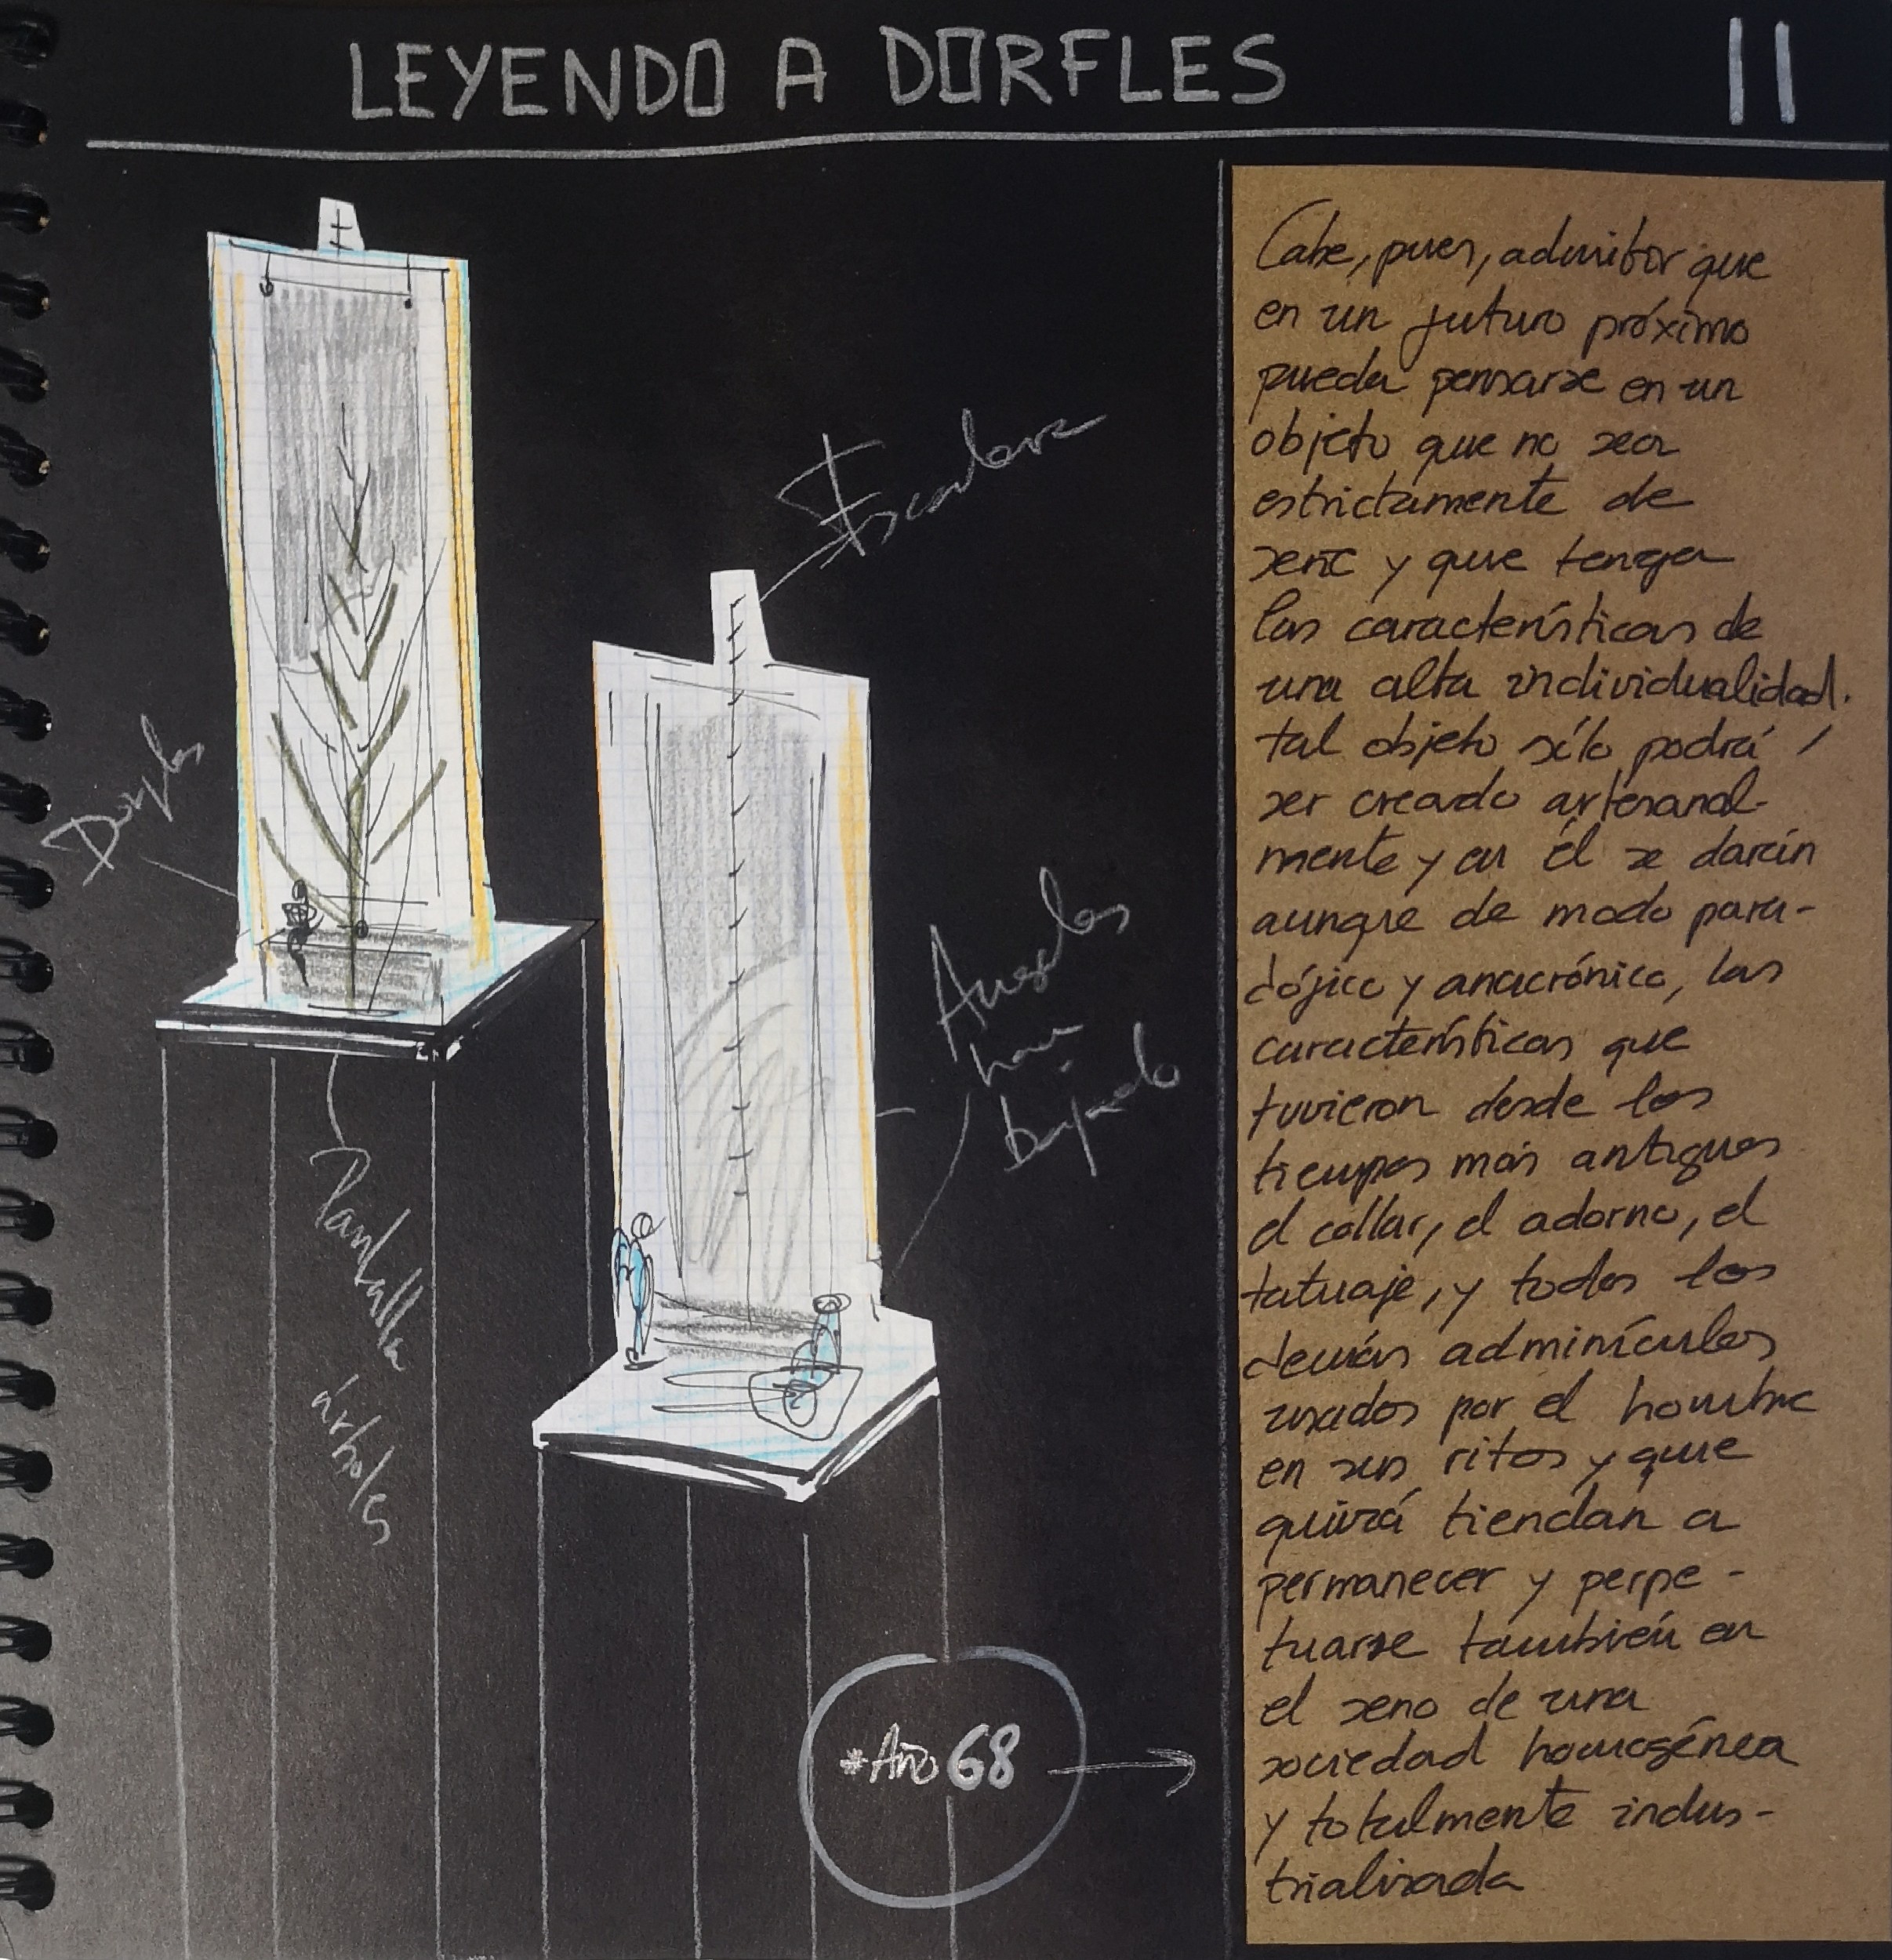 LEYENDO A DORFLES
11
Escalera
Dorfles
Angeles
han
bajado
Pantalla
árboles
*Año 68
Cabe, pues, admitir que
en un futuro próximo
pueda pensarse en un
objeto que no sea
estrictamente de
serie y que tenga
las características de
una alta individualidad.
tal objeto sólo podrá
ser creado artesanal-
mente y en él se darán
aunque de modo para-
dójico y anacrónico, las
características que
tuvieron desde los
tiempos más antiguos
el collar, el adorno, el
tatuaje, y todos los
demás adminículos
usados por el hombre
en sus ritos y que
quizá tiendan a
permanecer y perpe-
tuarse también en
el seno de una
sociedad homogénea
y totalmente indus-
trializada